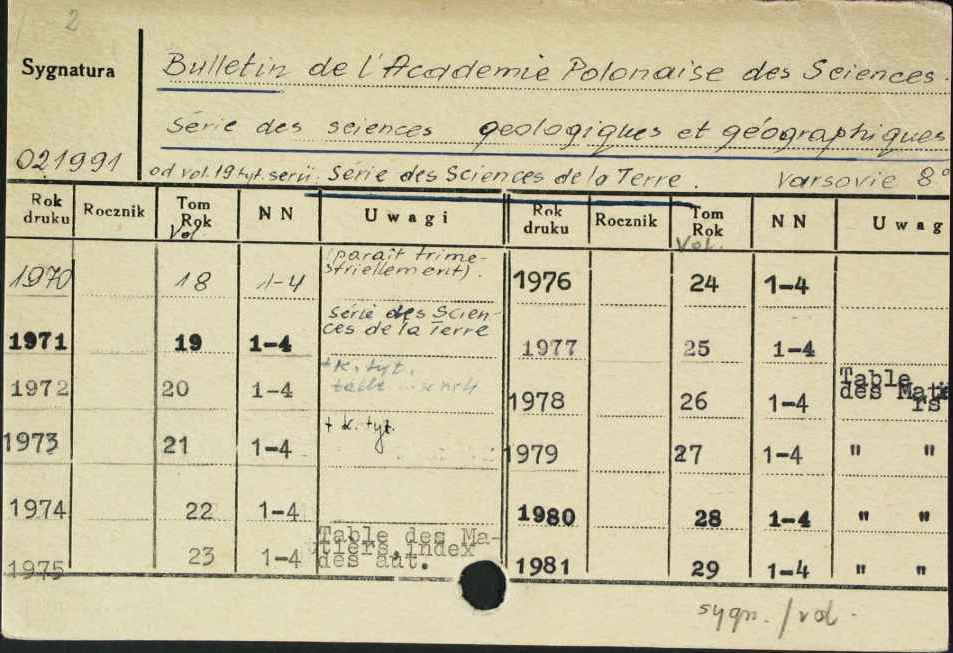 2
Sygnatura
Bulletin de l'Académie Polonaise des Sciences.
Série des sciences geologiques et géographiques
021991
od vol.19 tyt. serii: Série des Sciences de la Terre. Varsovie 8°
Rok druku Rocznik Tom Rok Vol NN Uwagi Rok druku Rocznik Tom Rok Vol. NN Uwag
1970 18 1-4 (paraît trime-striellement). 1976 24 1-4
1971 19 1-4 Série des Scien-ces de la Terre 1977 25 1-4
1972 20 1-4 +K. tyt. 1978 26 1-4 Table des Mat
1973 21 1-4 + K. tyt. 1979 27 1-4 " "
1974 22 1-4 1980 28 1-4 " "
1975 23 1-4 Table des Ma-tiers, index des aut. 1981 29 1-4 " "
sygn. / vol.